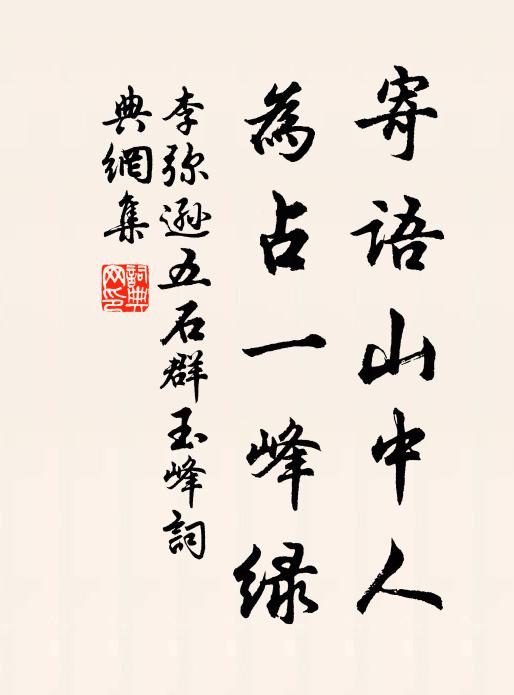 寄語山中人
為占一峰绿
李弥遜五石群玉峰詞
典網集
詞典網印